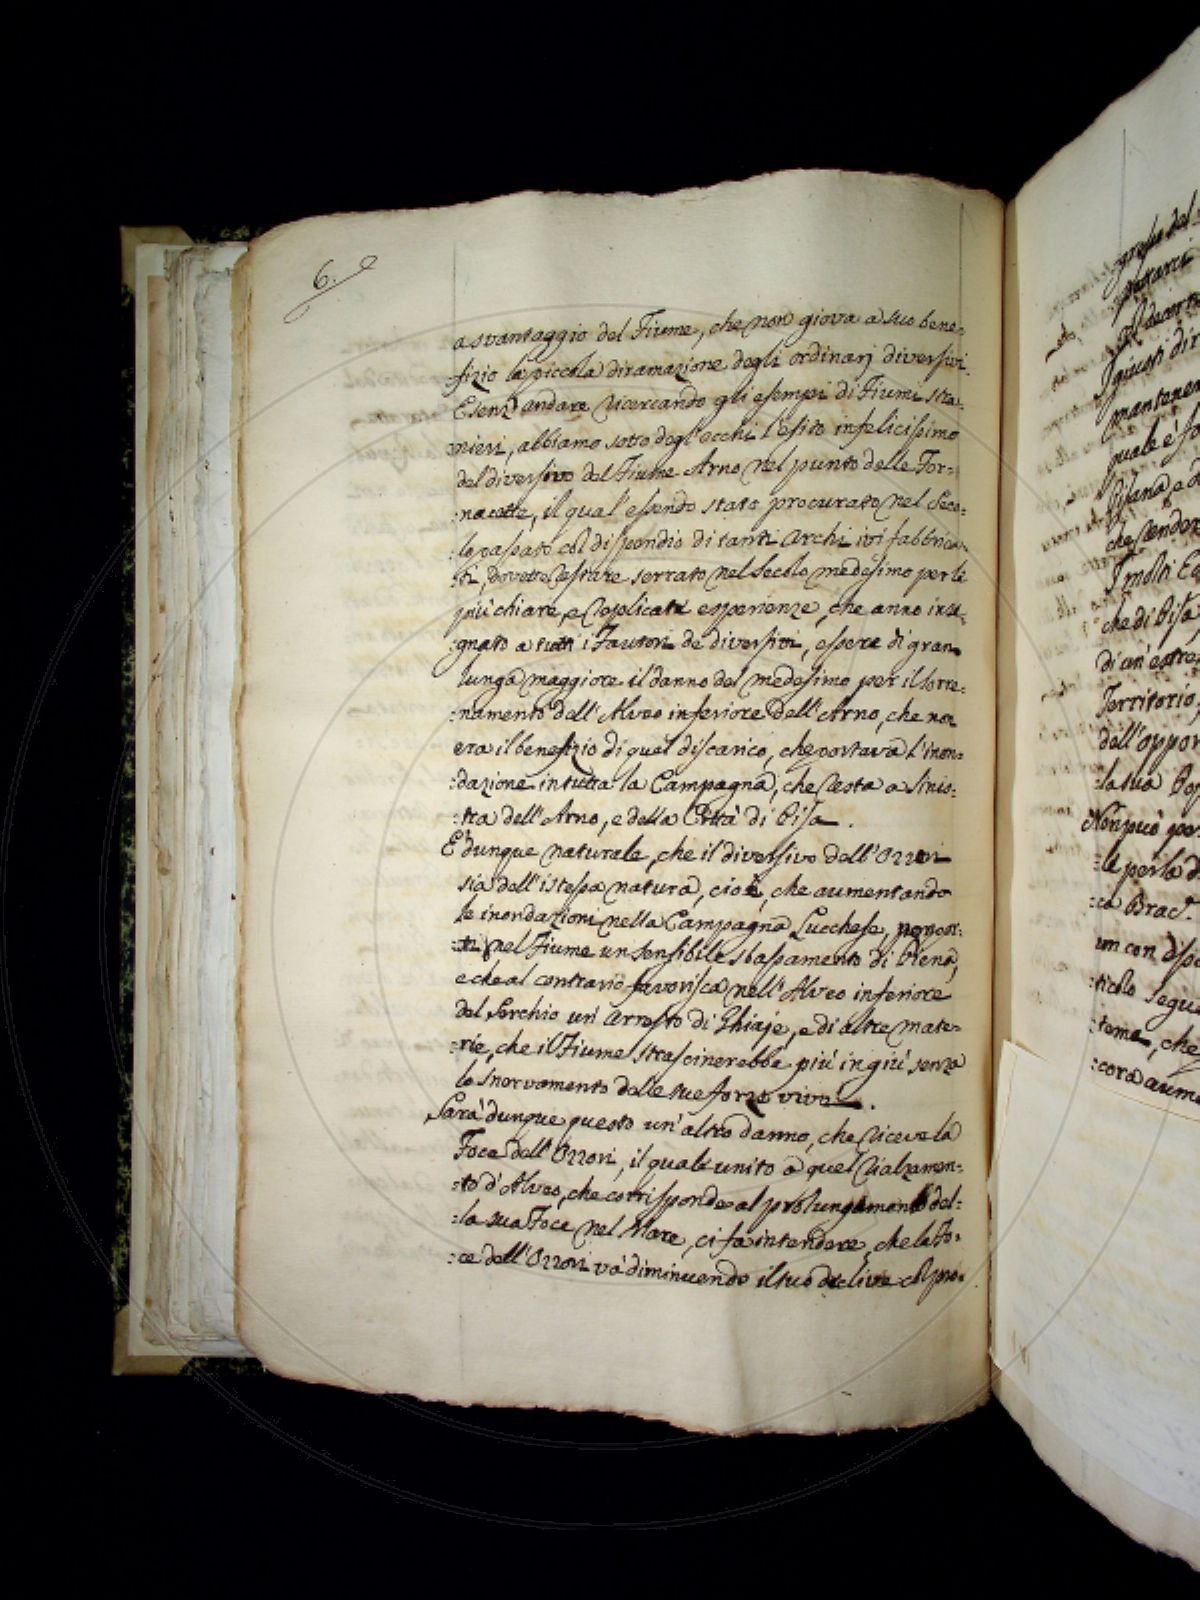 6.
a svantaggio del Fiume, che non giova a suo bene-
:fizio la piccola diramazione degli ordinarj diversivi.
E senz'andare ricercando gli esempi di Fiumi stra-
nieri, abbiamo sotto degl'occhi l'esito infelicissimo
del diversivo del Fiume Arno nel punto delle For-
:nacette, il qual'essendo stato procurato nel Seco-
:lo passato col dispendio di tanti Archi ivi fabbrica-
:ti, dovette restare serrato nel secolo medesimo per le
più chiare, e replicate esperienze, che anno inse-
:gnato a tutti i Fautori de diversivi, essere di gran
lunga maggiore il danno del medesimo per il Torre-
:namento dell'Alveo inferiore dell'Arno, che non
era il benefizio di quel discarico, che portava l'inon-
:dazione in tutta la Campagna, che resta a sinis-
:tra dell'Arno, e della Città di Pisa.
E' dunque naturale, che il diversivo dell'Ozzori
sia dell'istessa natura, cioè, che aumentando
le inondazioni nella Campagna Lucchese, non por-
:ti nel Fiume un sensibile sbassamento di Piena,
e che al contrario favorisca nell'Alveo inferiore
del Serchio un'arresto di Ghiaje, e di altre mate-
:rie, che il Fiume strascinerebbe più in giù senza
lo snervamento delle sue forze vive.
Sarà dunque questo un'altro danno, che riceve la
Foce dell'Ozzori, il quale unito a quel rialzamen-
:to d'Alveo, che corrisponde al prolungamento del-
:la sua Foce nel Mare, ci fa intendere, che la Fo-
:ce dell'Ozzori và diminuendo il suo declive col pro-
giusti dir
mantenen
quale è
Pisana, e
che
I molti
che di Pisa
di un'estre
Territorio,
dell'oppor
:la sua Pop
Non può per
:le per la d
:ca Brac.
um con dis
:ticolo segu
:tema, che
:cora aume